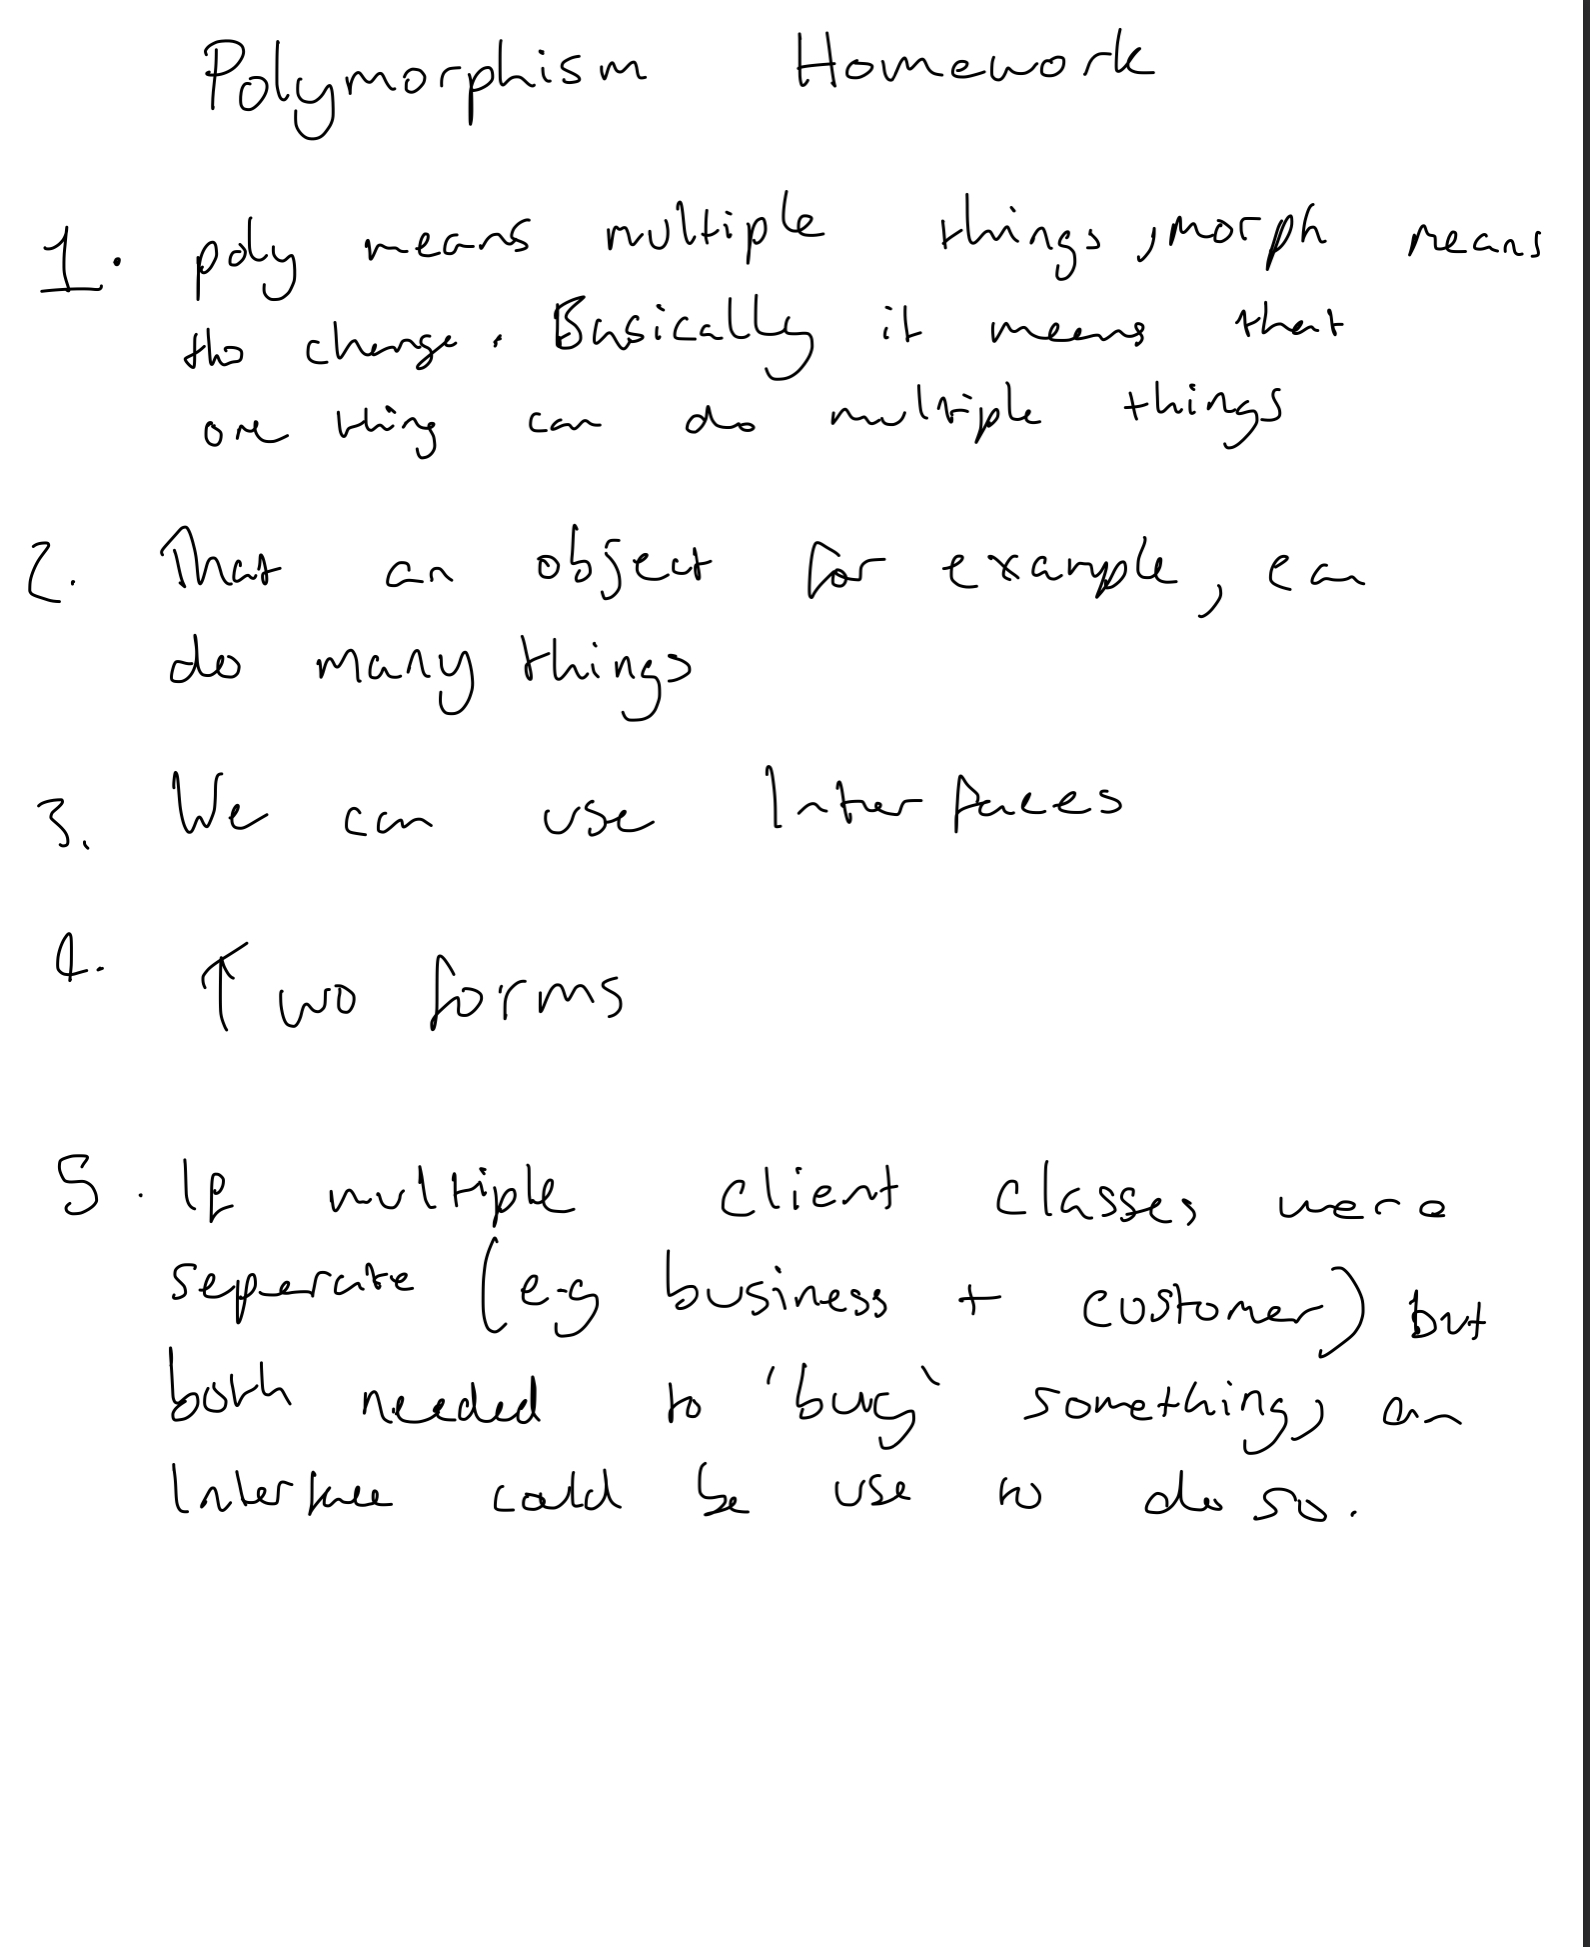 Polymorphism Homework
1. poly means multiple things, morph means
to change. Basically it means that
one thing can do multiple things
2. That an object for example, can
do many things
3. We can use Interfaces
4. Two forms
5. If multiple client classes were
seperate (e.g business + customer) but
both needed to 'buy' something, an
Interface could be use to do so.